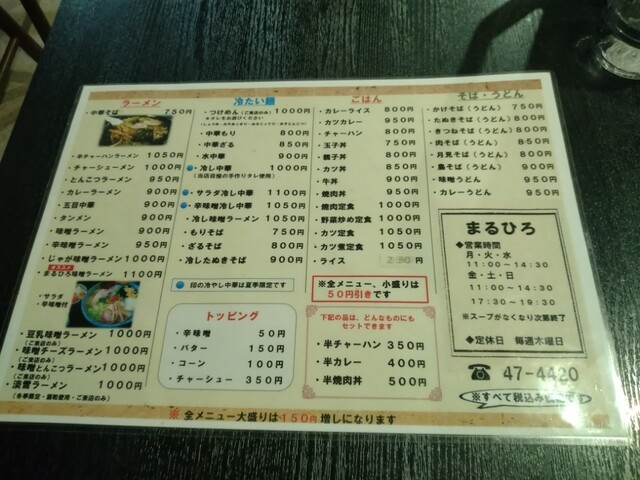 ラーメン
・中華そば 750円
・半チャーハンラーメン 1050円
・チャーシューメン 1000円
・とんこつラーメン 950円
・カレーラーメン 900円
・五目中華 900円
・タンメン 900円
・味噌ラーメン 900円
・辛味噌ラーメン 950円
・じゃが味噌ラーメン 1000円
・まるひろ味噌ラーメン 1100円
・サラダ
・辛味噌付
・豆乳味噌ラーメン 1000円
(ご来店のみ)
・味噌チーズラーメン 1000円
(ご来店のみ)
・味噌とんこつラーメン 1000円
(ご来店のみ)
・淡雪ラーメン 1000円
(冬季限定・麺乾使用・ご来店のみ)
冷たい麺
・つけめん(ご来店のみ) 1000円
・中華もり 800円
・中華ざる 850円
・水中華 900円
・冷し中華 1000円
(当店自慢の手作りタレ使用)
・サラダ冷し中華 1100円
・辛味噌冷し中華 1050円
・冷し味噌ラーメン 1050円
・もりそば 750円
・ざるそば 800円
・冷したぬきそば 900円
印の冷やし中華は夏季限定です
トッピング
・辛味噌 50円
・バター 150円
・コーン 100円
・チャーシュー 350円
ごはん
・カレーライス 800円
・カツカレー 950円
・チャーハン 800円
・玉子丼 750円
・親子丼 800円
・カツ丼 850円
・牛丼 900円
・焼肉丼 950円
・焼肉定食 1000円
・野菜炒め定食 1000円
・カツ定食 1050円
・カツ煮定食 1050円
・ライス
※全メニュー、小盛りは
50円引きです
下記の品は、どんなものにも
セットできます
・半チャーハン 350円
・半カレー 400円
・半焼肉丼 500円
そば・うどん
・かけそば(うどん) 750円
・たぬきそば(うどん) 800円
・きつねそば(うどん) 800円
・肉そば(うどん) 850円
・月見そば(うどん) 800円
・鳥そば(うどん) 900円
・味噌うどん 950円
・カレーうどん 950円
まるひろ
◆営業時間
月・火・水
11:00~14:30
金・土・日
11:00~14:30
17:30~19:30
※スープがなくなり次第終了
◆定休日 毎週木曜日
☎ 47-4420
※すべて税込み価格です
※ 全メニュー大盛りは150円増しになります